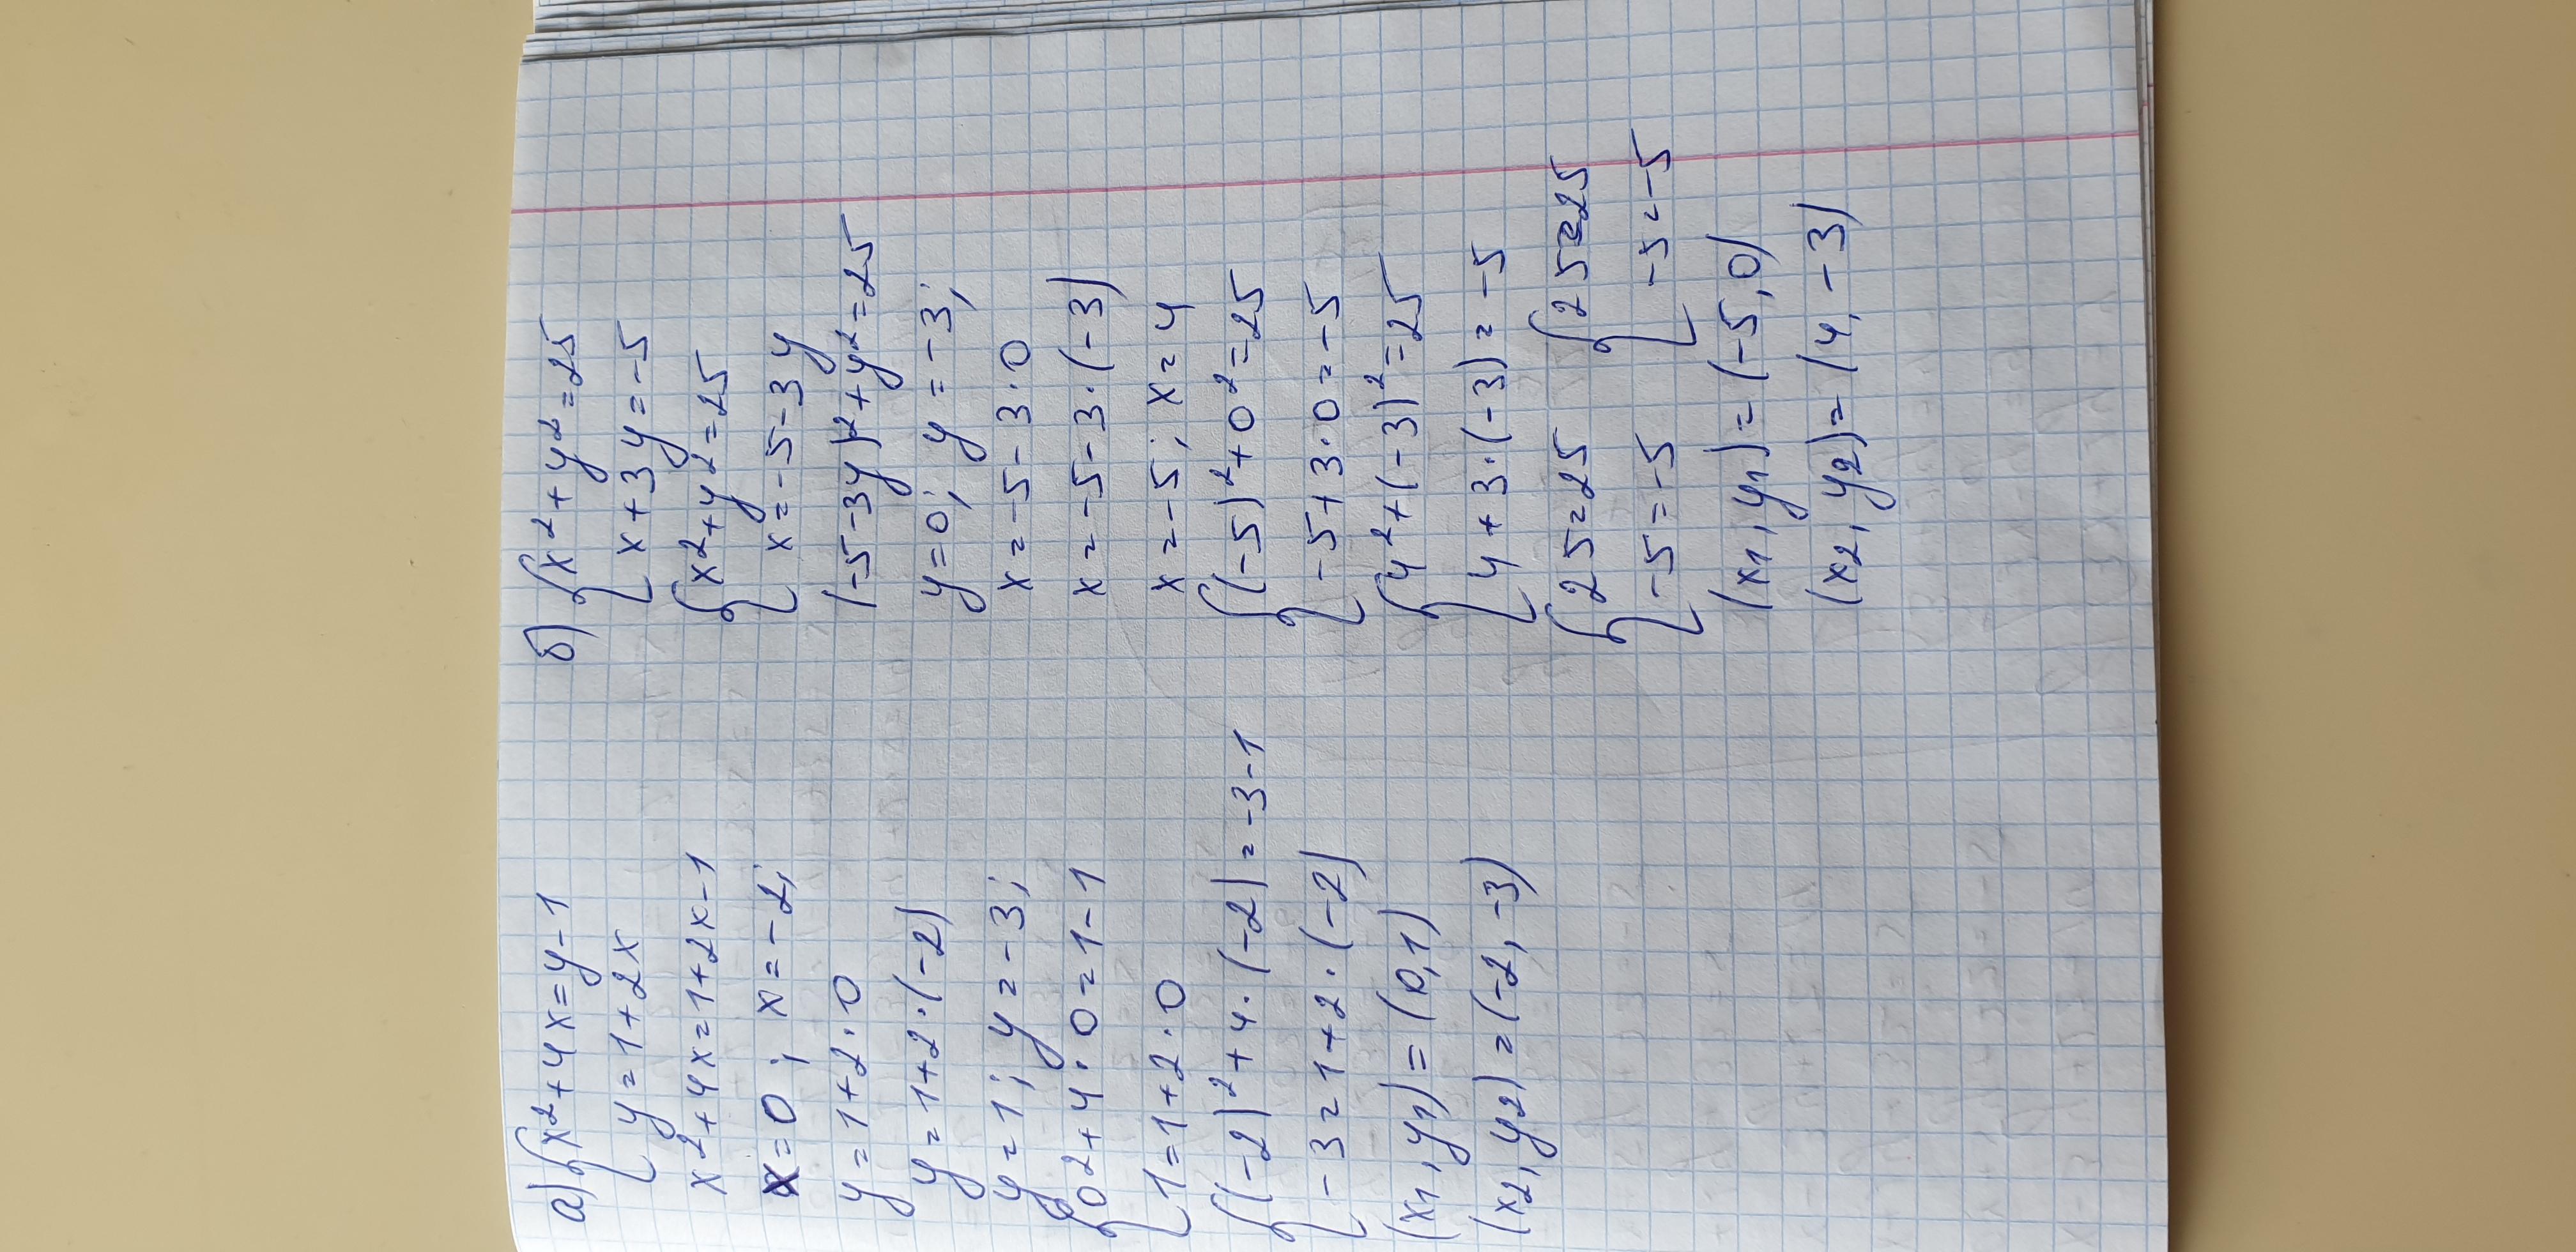 а) { x²+4x=y-1
y=1+2x
x²+4x=1+2x-1
x=0; x=-2;
y=1+2·0
y=1+2·(-2)
y=1; y=-3;
{ 0²+4·0=1-1
1=1+2·0
{ (-2)²+4·(-2)=-3-1
-3=1+2·(-2)
(x1,y1)=(0,1)
(x2,y2)=(-2,-3)
б) { x²+y²=25
x+3y=-5
{ x²+y²=25
x=-5-3y
(-5-3y)²+y²=25
y=0; y=-3;
x=-5-3·0
x=-5-3·(-3)
x=-5; x=4
{ (-5)²+0²=25
-5+3·0=-5
{ 4²+(-3)²=25
4+3·(-3)=-5
{ 25=25 { 25=25
-5=-5 -5=-5
(x1,y1)=(-5,0)
(x2,y2)=(4,-3)